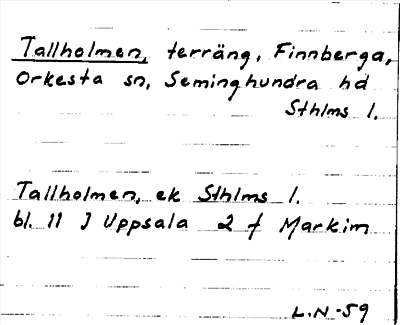 Tallholmen, terräng, Finnberga,
Orkesta sn, Seminghundra hd
Sthlms l.
Tallholmen, ek Sthlms l.
bl. 11 J Uppsala 2 f Markim
L.N-59